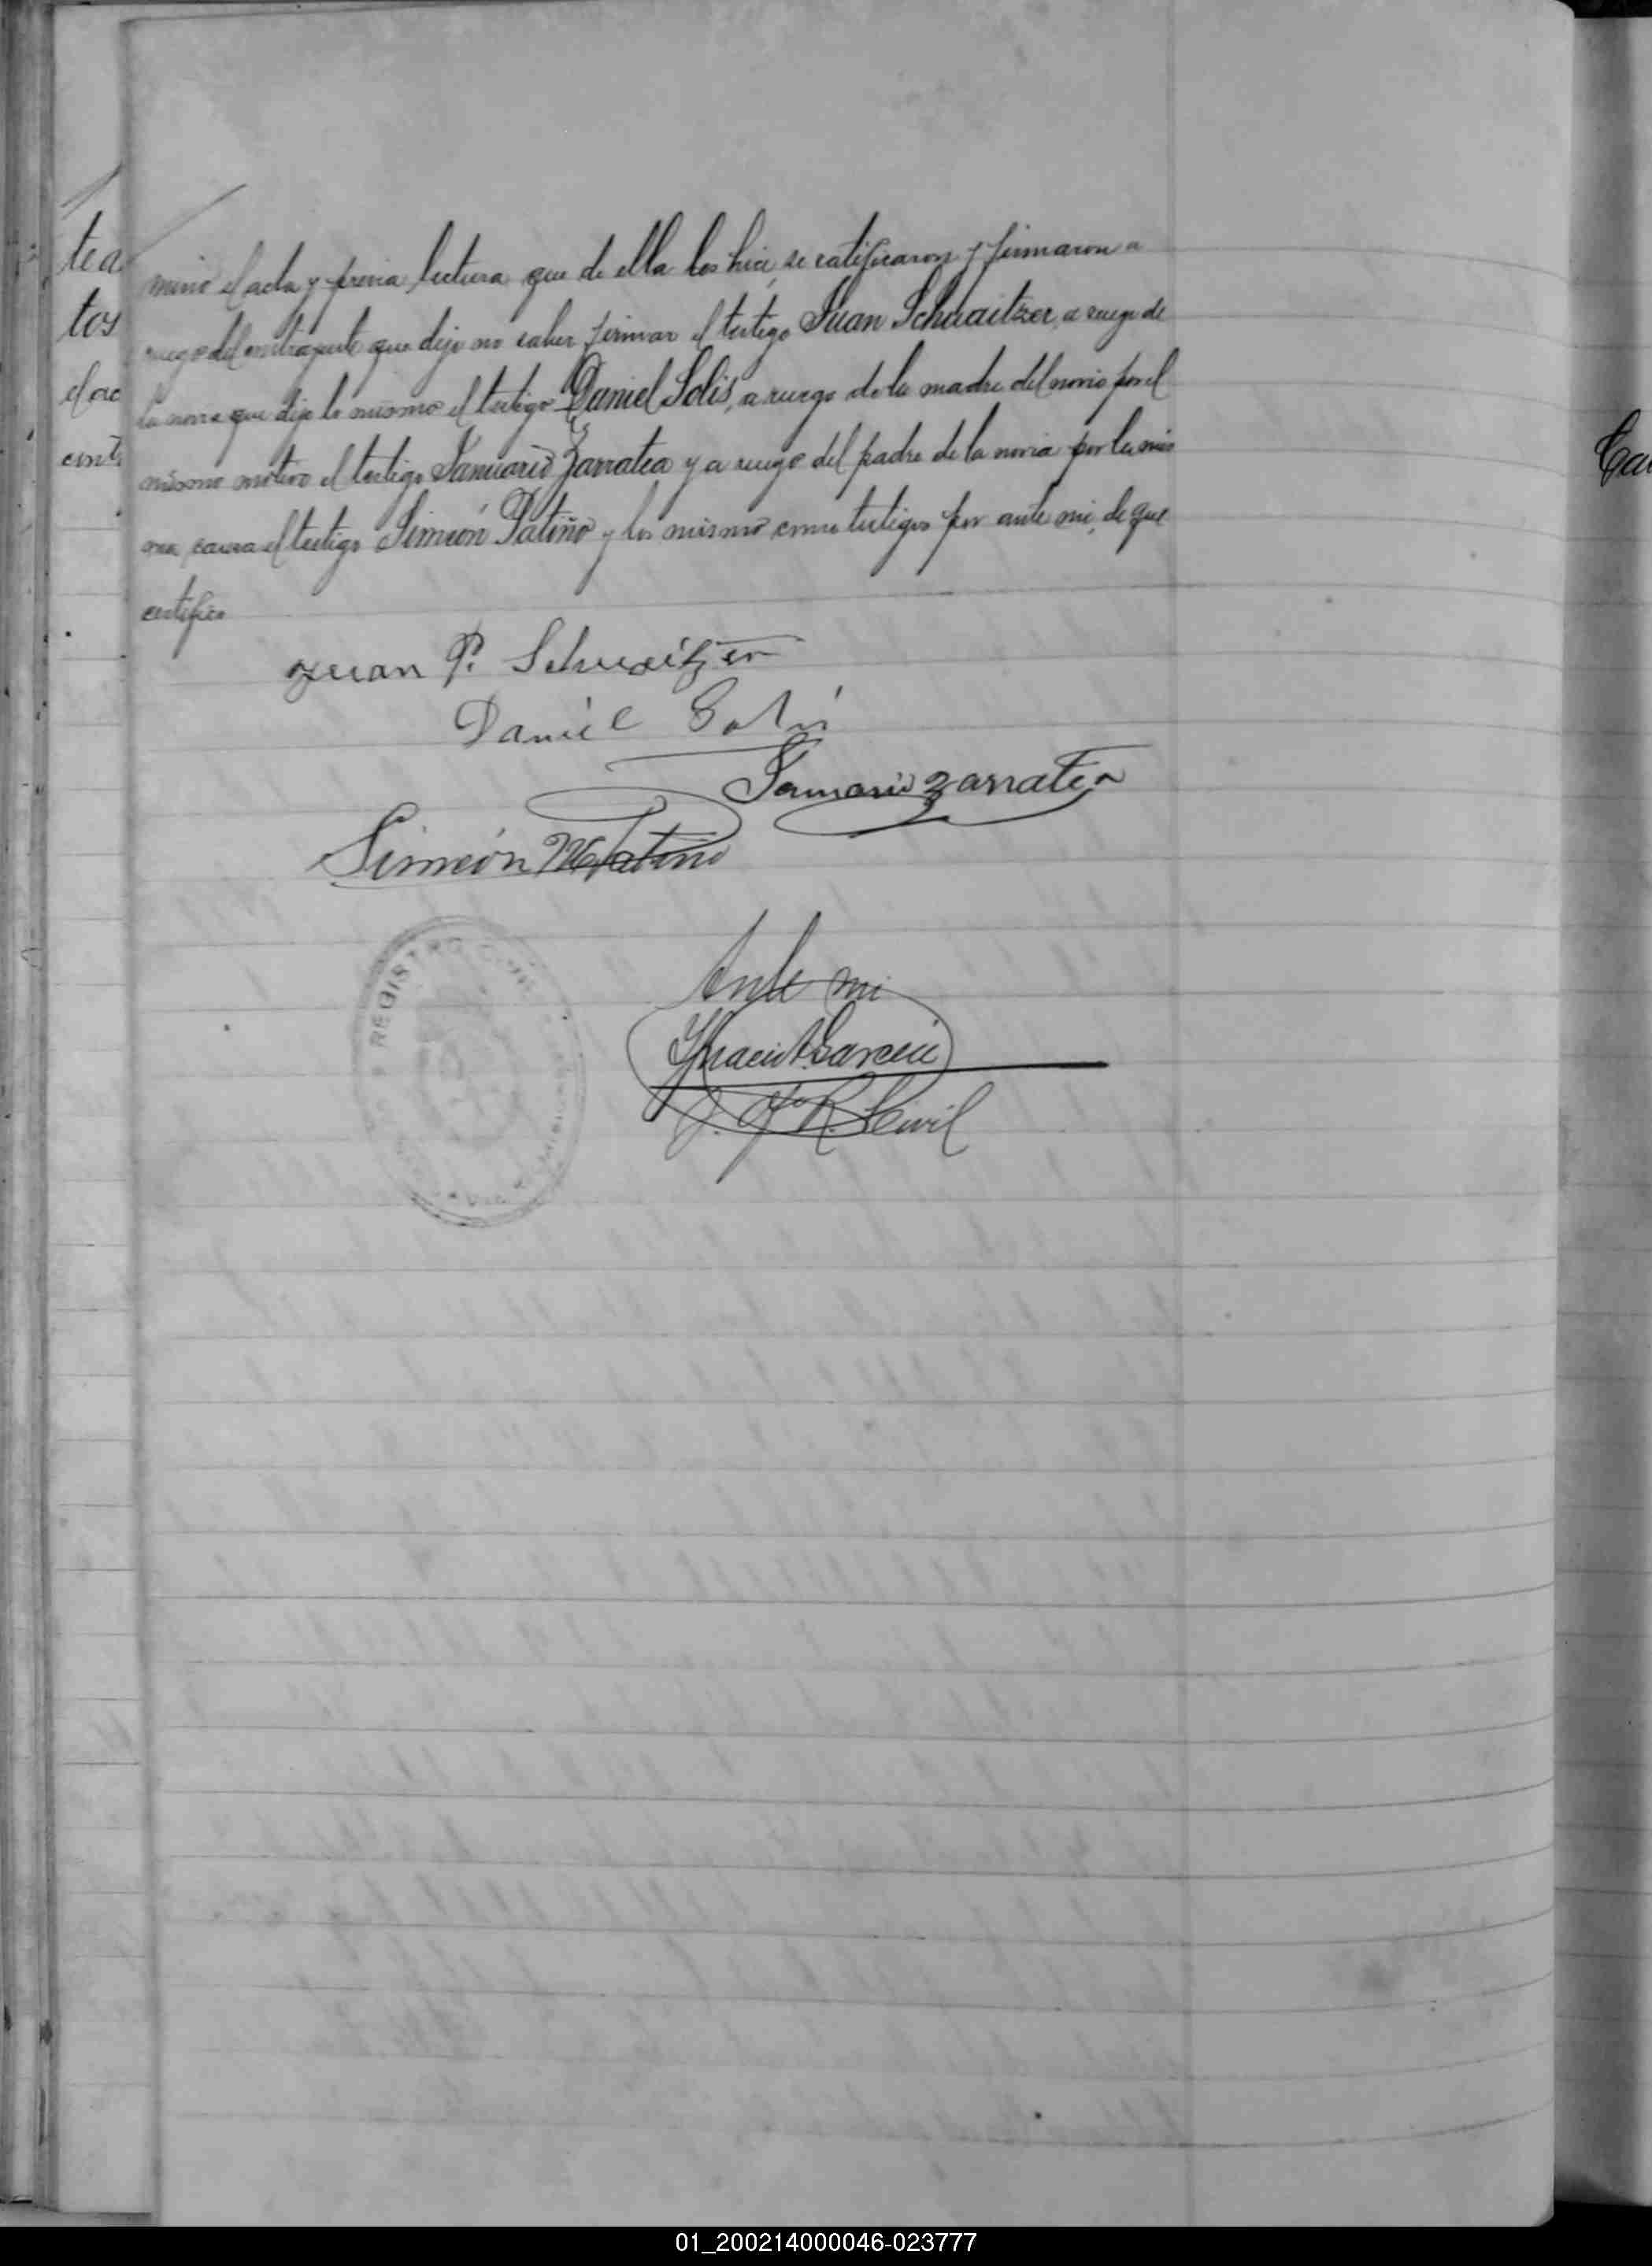 tea
tos
el ac
cont
minó el acta y previa lectura que de ella les hice, se ratificaron y firmaron a
ruego del contrayente que dijo no saber firmar el testigo Juan Schuaitzer, a ruego de
la novia que dijo lo mismo el testigo Daniel Solis, a ruego de la madre del novio por el
mismo motivo el testigo Januario Zarratea y a ruego del padre de la novia por la mis
ma causa el testigo Simeón Patiño y los mismo como testigos por ante mi, de que
certifico
Juan P. Schuaitzer
Daniel Solis
Januario Zarratea
Simeón M Patiño
REGISTRO CIVIL
Ante mi
Ygnacio A. Garcia
J. Of R. Civil
Ca
01_200214000046-023777